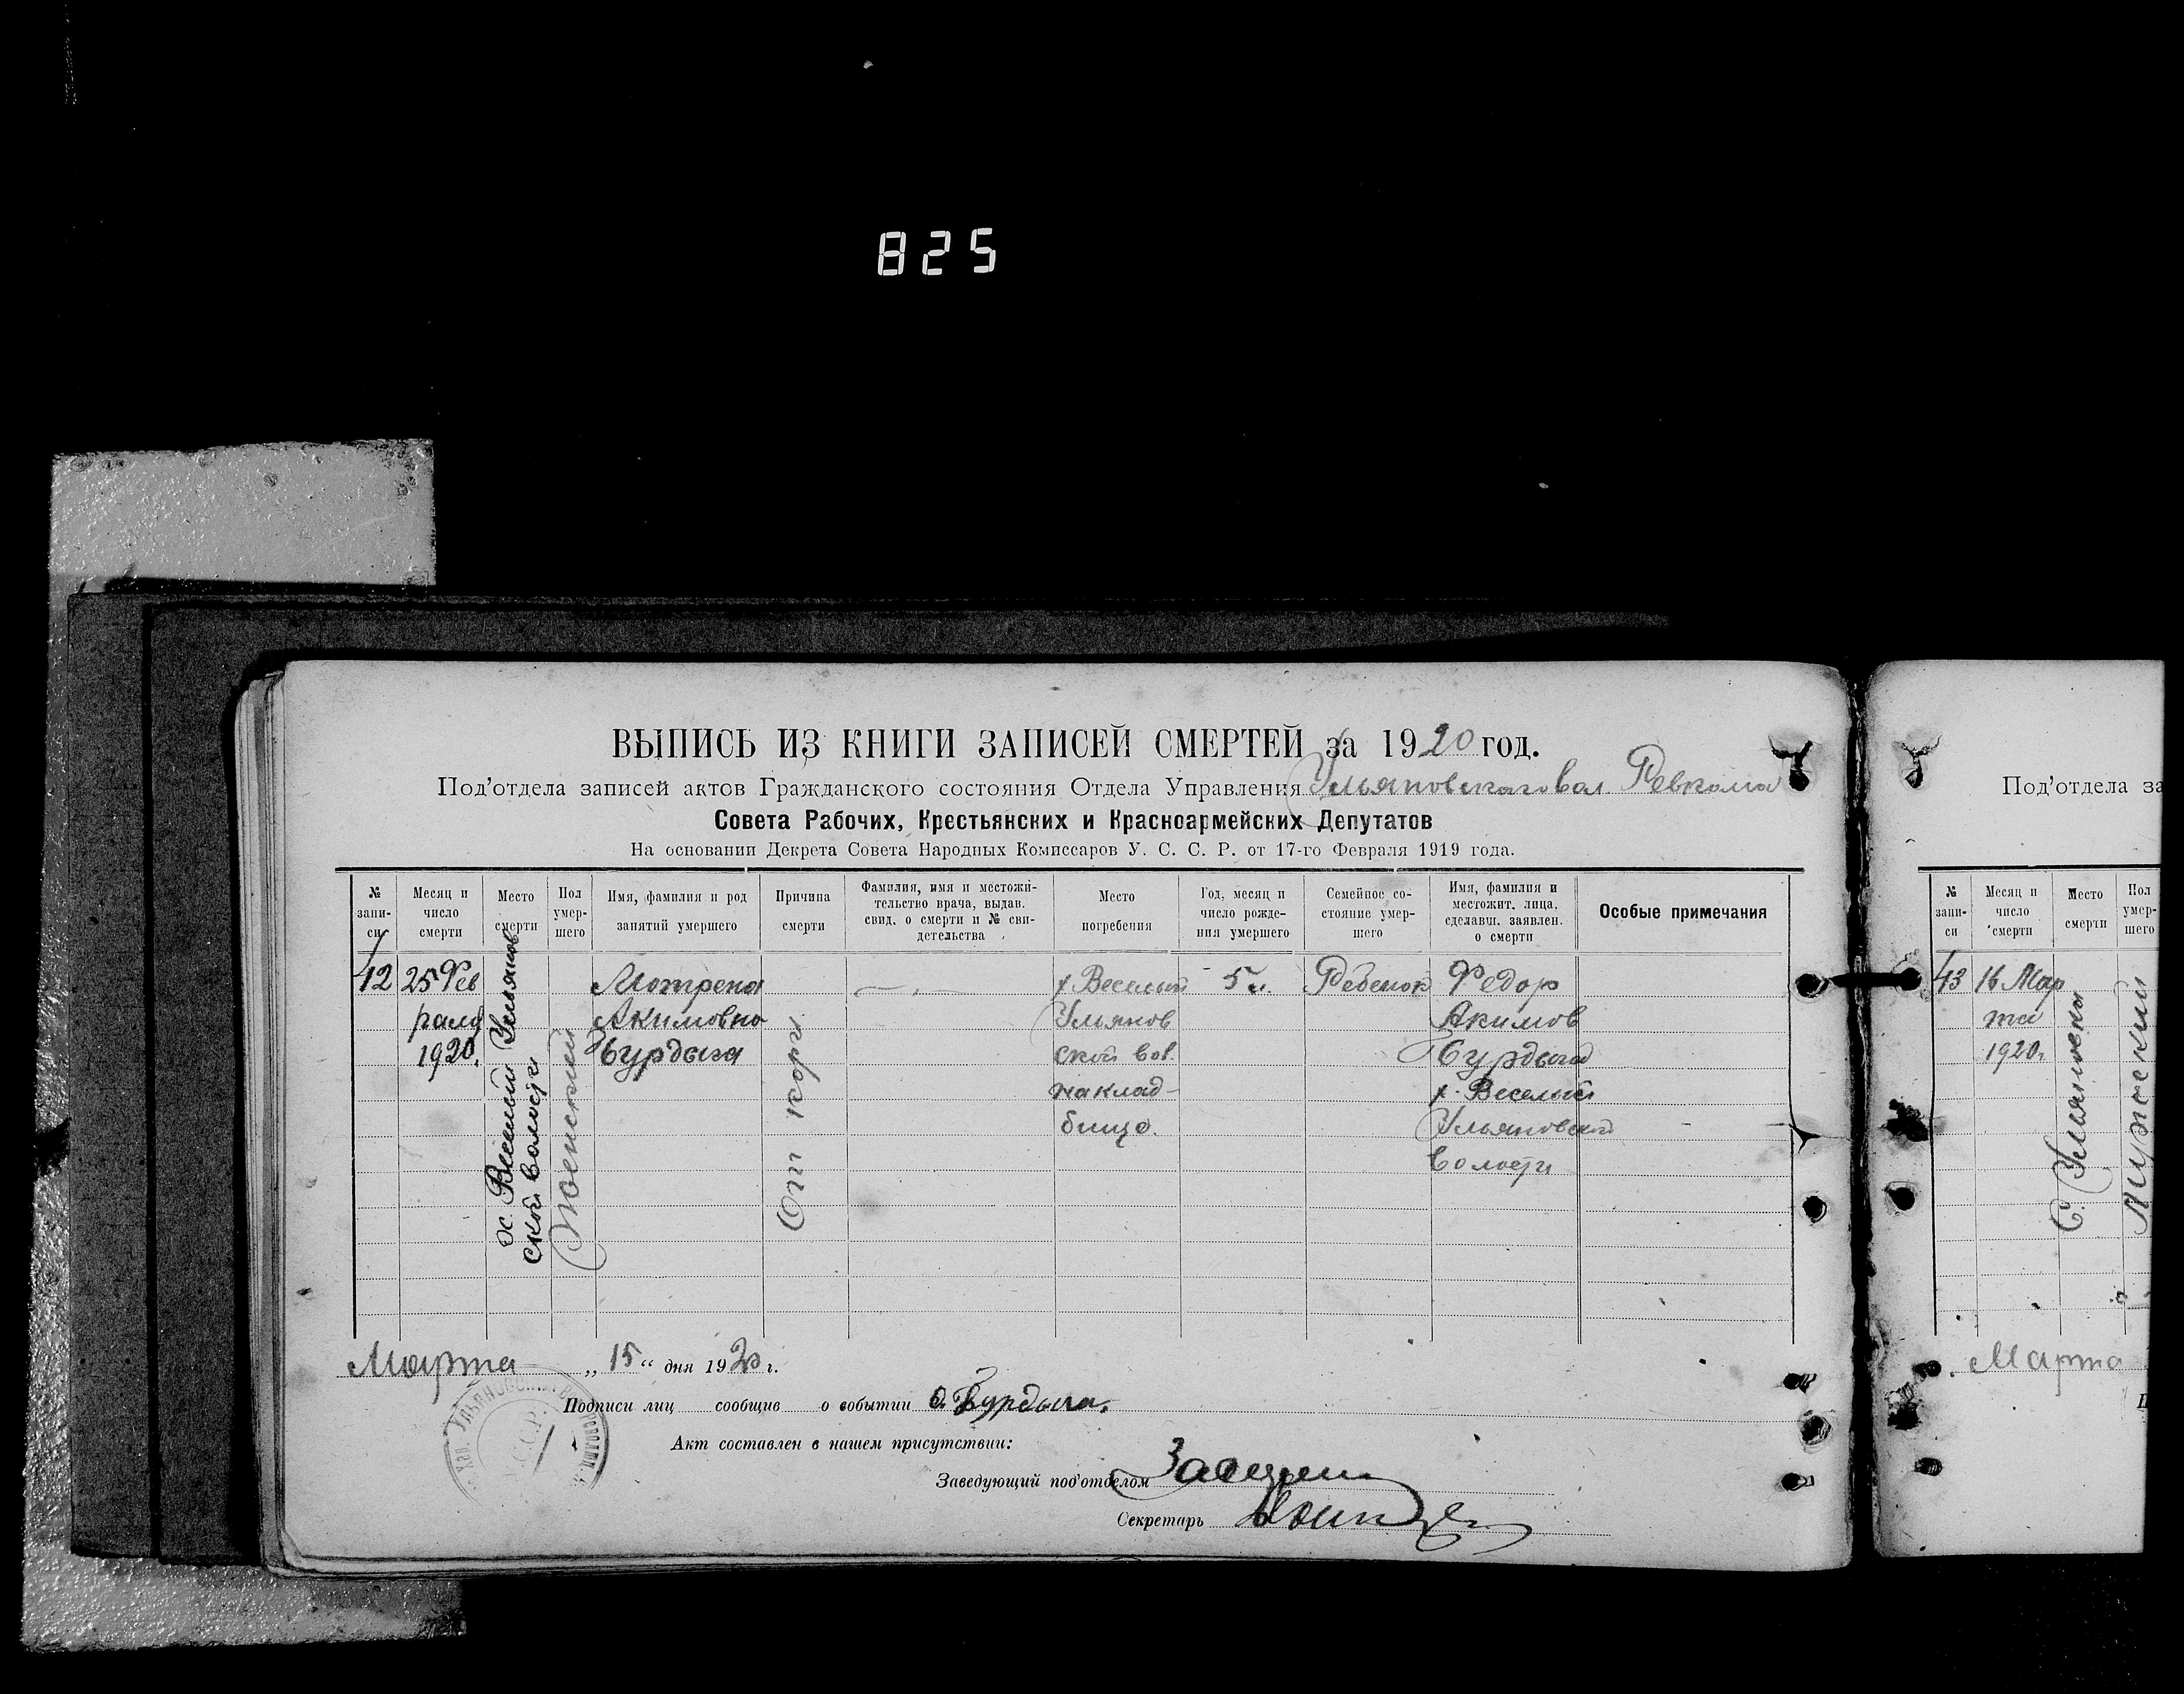 825
ВЫПИСЬ ИЗ КНИГИ ЗАПИСЕЙ СМЕРТЕЙ за 1920 год.
Под'отдела записей актов Гражданского состояния Отдела Управления Ульяновскаго вол Ревкома
Совета Рабочих, Крестьянских и Красноармейских Депутатов
На основании Декрета Совета Народных Комиссаров У. С. С. Р. от 17-го Февраля 1919 года.
№ запи- си
Месяц и число смерти
Место смерти
Пол умер- шего
Имя, фамилия и род занятий умершего
Причина смерти
Фамилия, имя и местожи- тельство врача, выдав. свид. о смерти и № сви- детельства
Место погребения
Год, месяц и число рожде- ния умершего
Семейное со- стояние умер- шего
Имя, фамилия и местожит. лица, сделавш. заявлен. о смерти
Особые примечания
12
25 Фев
раля
1920.
х. Веселый Ульянов
ской волости
Женский
Мотрена
Акимовна
Бурдыга
От кори
х Веселый
Ульянов
ской вол.
наклад-
бище.
5 л.
Ребенок
Федор
Акимов
Бурдыга
х. Веселый
Ульяновской
волости
Марта „15“ дня 1920 г.
Подписи лиц сообщив о событии Бурдыга.
Акт составлен в нашем присутствии:
Заведующий под'отделом
Секретарь
Под'отдела за
№ запи- си
Месяц и число смерти
Место смерти
Пол умер- шего
13
16 Мар
та
1920.
С. Ульяновка
Мужский
Марта